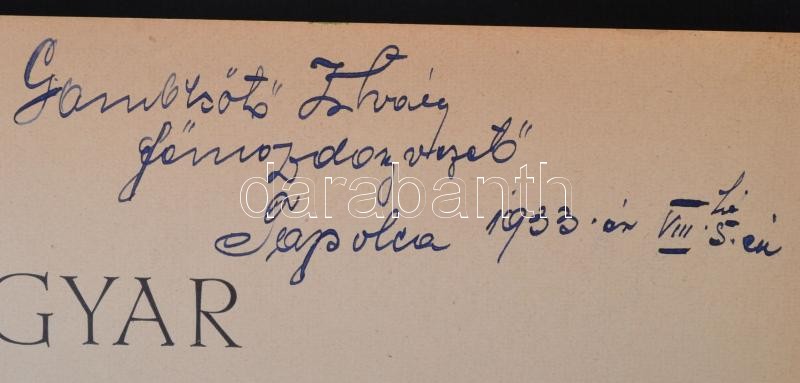 István
főmozdonyvezető
darabanth
Tapolca 1933. év VIII. hó 5.-én
GYAR